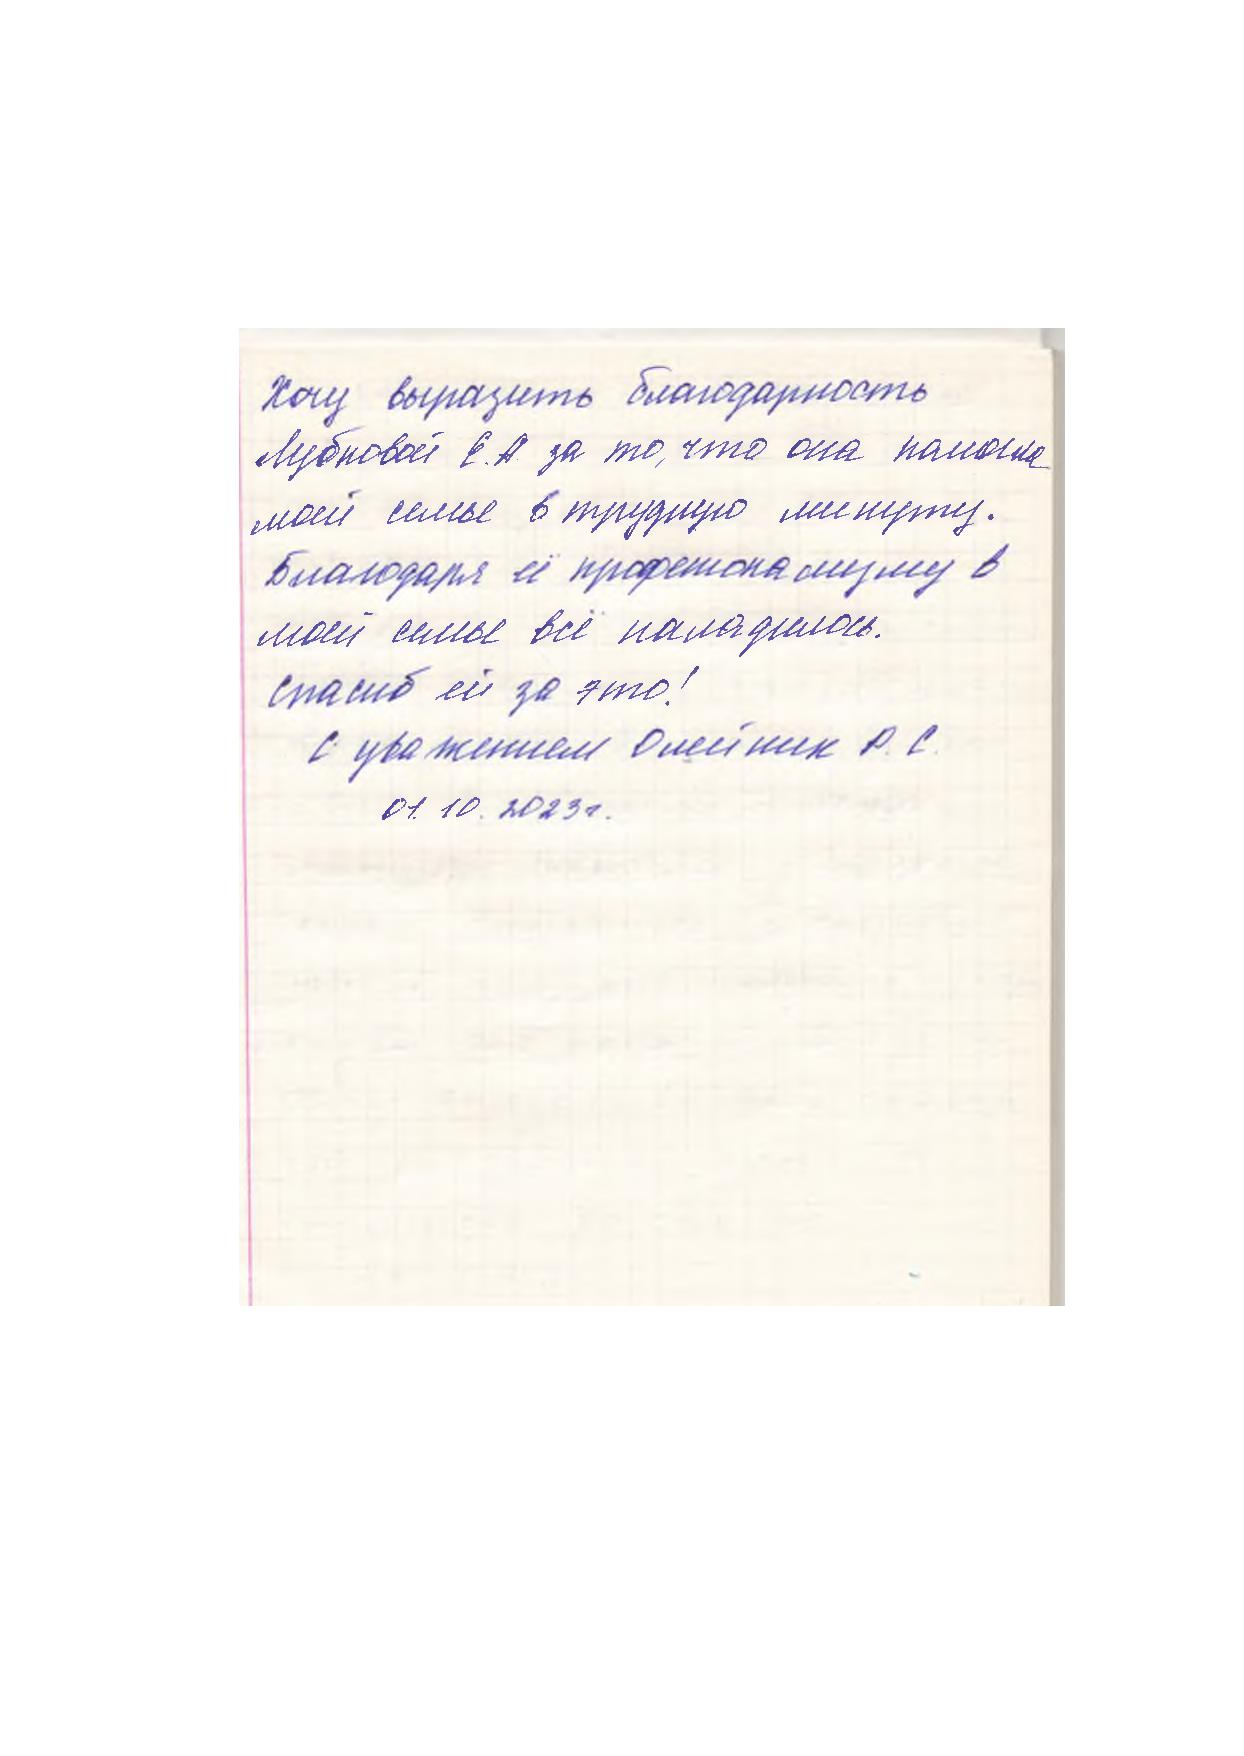 Хочу выразить благодарность
Лубновой Е.А за то, что она памогла
моей семье в трудную минуту.
Благодаря её професионализму в
моей семье всё наладилось.
Спасиб ей за это!
С уважением Олейник А. С.
01.10.2023г.